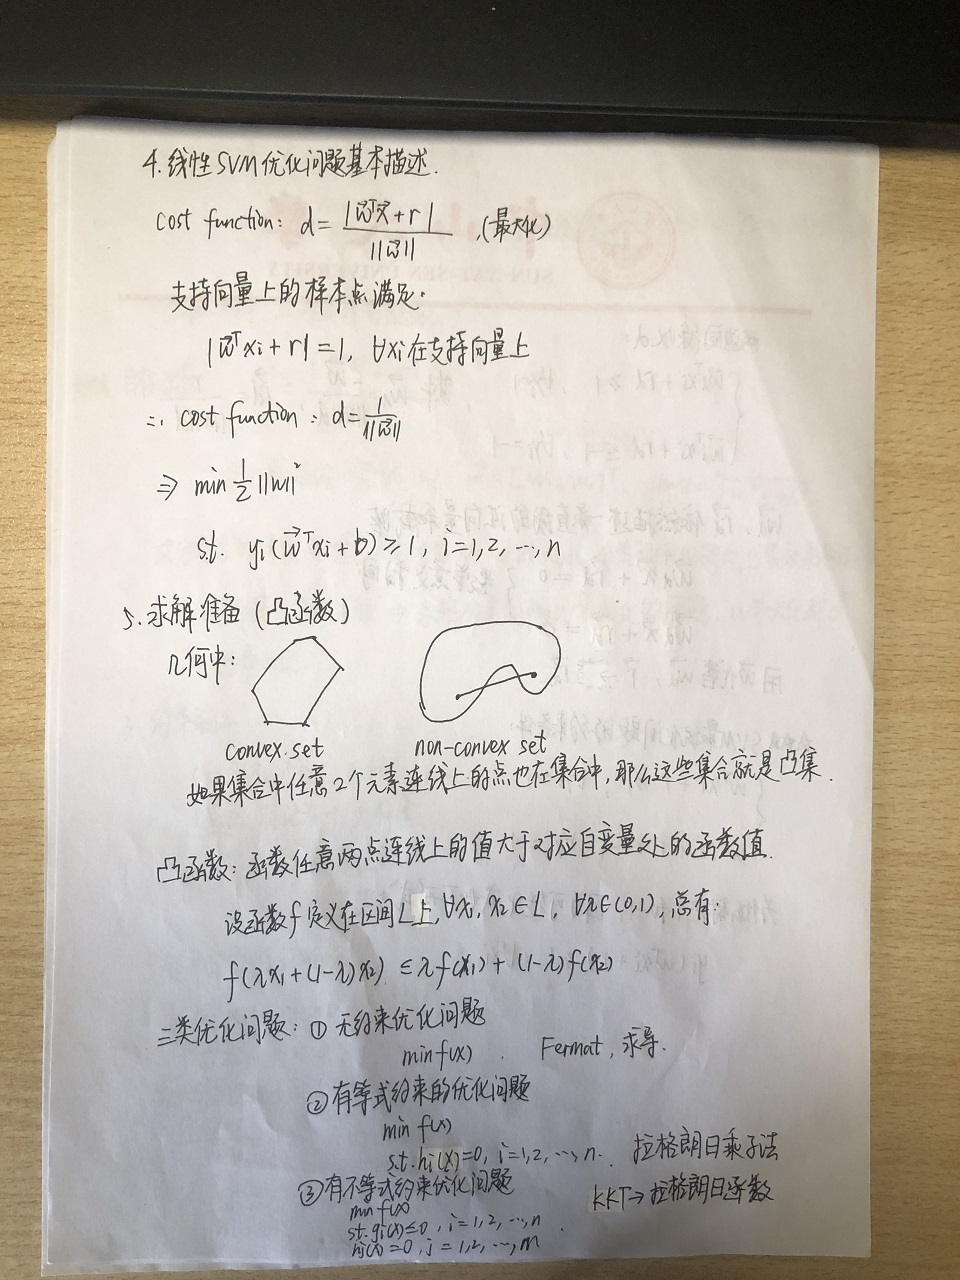 4. 线性SVM优化问题基本描述.
cost function: d = |w⃗ᵀx⃗ + r| / ||w⃗|| (最大化)
支持向量上的样本点满足:
|w⃗ᵀxi + r| = 1, ∀xi在支持向量上
∴ cost function : d = 1/||w⃗||
⇒ min 1/2 ||w||²
s.t. yi(w⃗ᵀxi + b) ≥ 1, i=1,2,…,n
5. 求解准备 (凸函数)
几何中:
convex set non-convex set
如果集合中任意2个元素连线上的点也在集合中,那么这些集合就是凸集.
凸函数: 函数任意两点连线上的值大于对应自变量处的函数值.
设函数f定义在区间L上, ∀x₁, x₂∈L, ∀λ∈(0,1), 总有:
f(λx₁+(1-λ)x₂) ≤ λf(x₁) + (1-λ)f(x₂)
三类优化问题: ① 无约束优化问题
min f(x) . Fermat, 求导.
② 有等式约束的优化问题
min f(x)
s.t. hi(x)=0, i=1,2,…,n. 拉格朗日乘子法
③ 有不等式约束优化问题
min f(x) KKT→拉格朗日函数
s.t. gi(x)≤0, i=1,2,…,n .
hj(x)=0, j=1,2,…,m